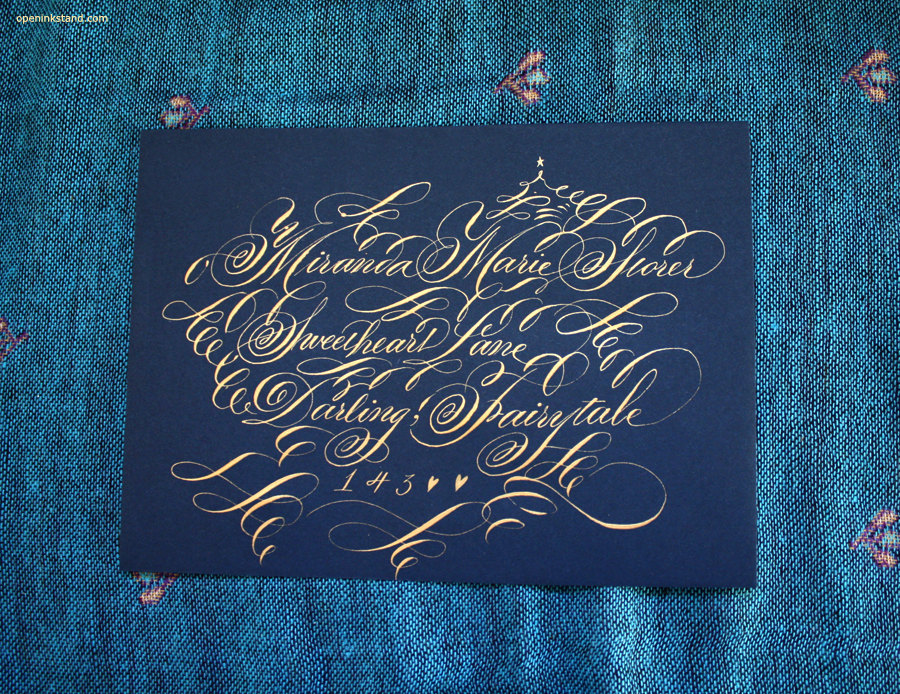 openinkstand.com
Miranda Marie Storer
Sweetheart Lane
Darling, Fairytale
143